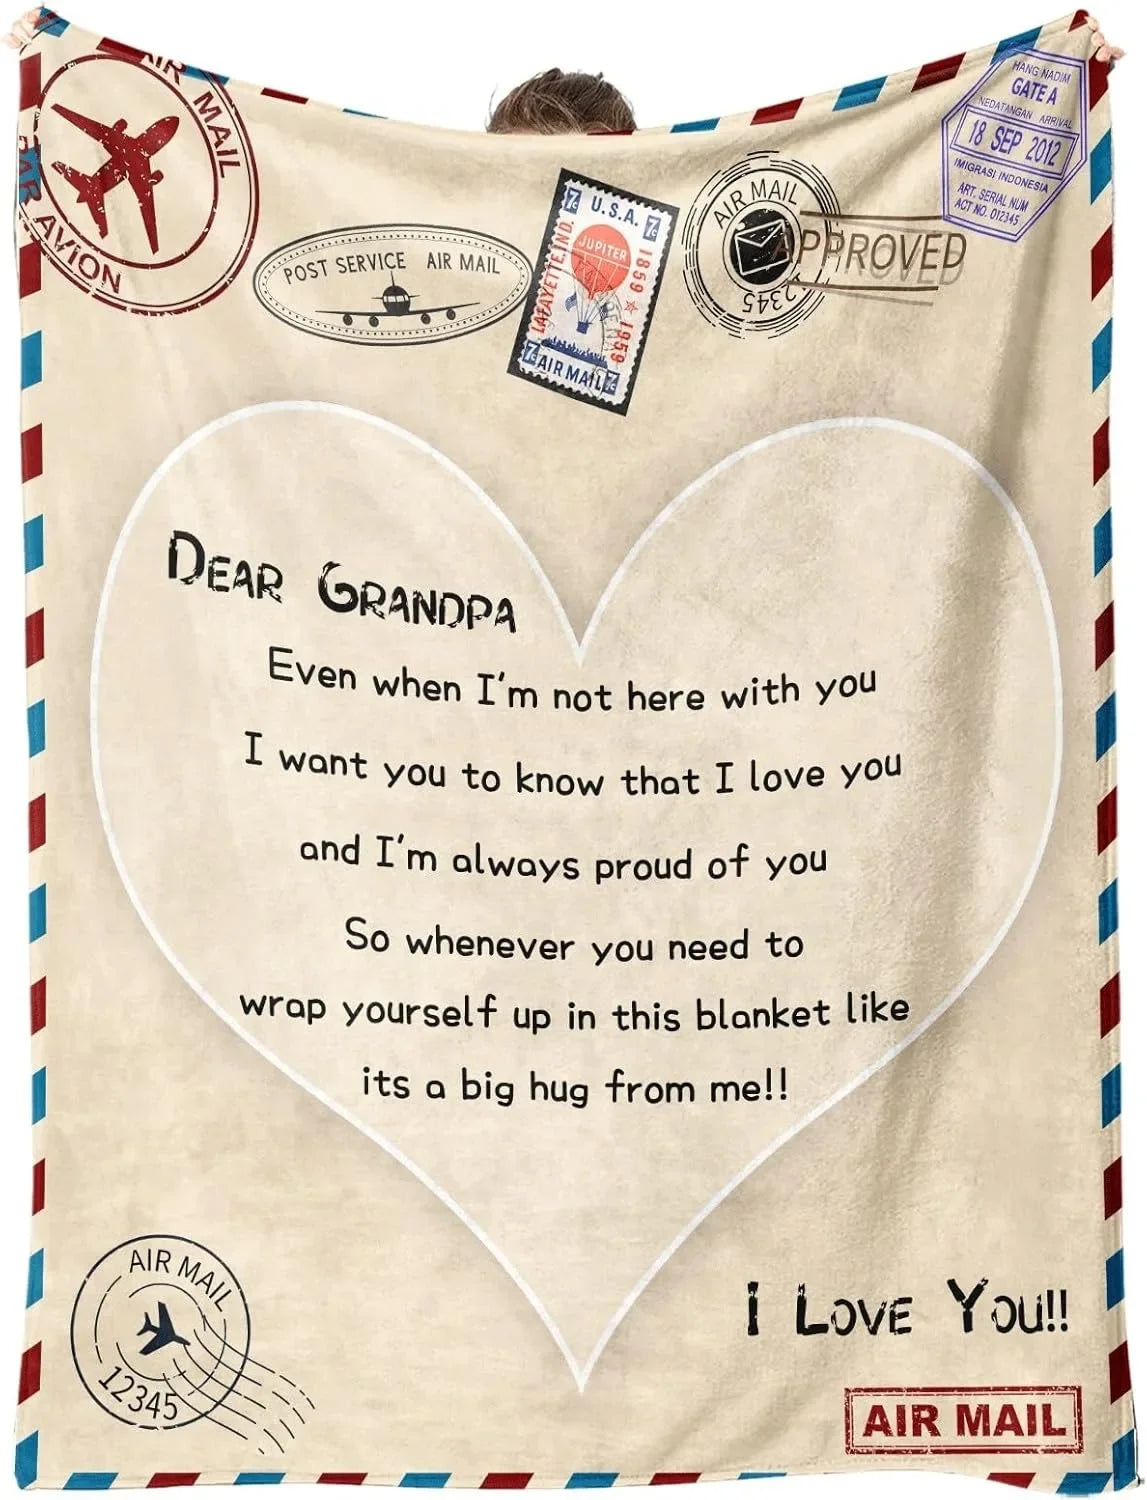 AIR MAIL
PAR AVION
POST SERVICE AIR MAIL
7c U.S.A. 7c
JUPITER
LAFAYETTE, IND.
1859 ★ 1959
7c AIR MAIL 7c
AIR MAIL
12345
APPROVED
HANG NADIM
GATE A
KEDATANGAN ARRIVAL
18 SEP 2012
IMIGRASI INDONESIA
ART. SERIAL NUM
ACT NO. 012345
DEAR GRANDPA
Even when I'm not here with you
I want you to know that I love you
and I'm always proud of you
So whenever you need to
wrap yourself up in this blanket like
its a big hug from me!!
I LOVE YOU!!
AIR MAIL
12345
AIR MAIL